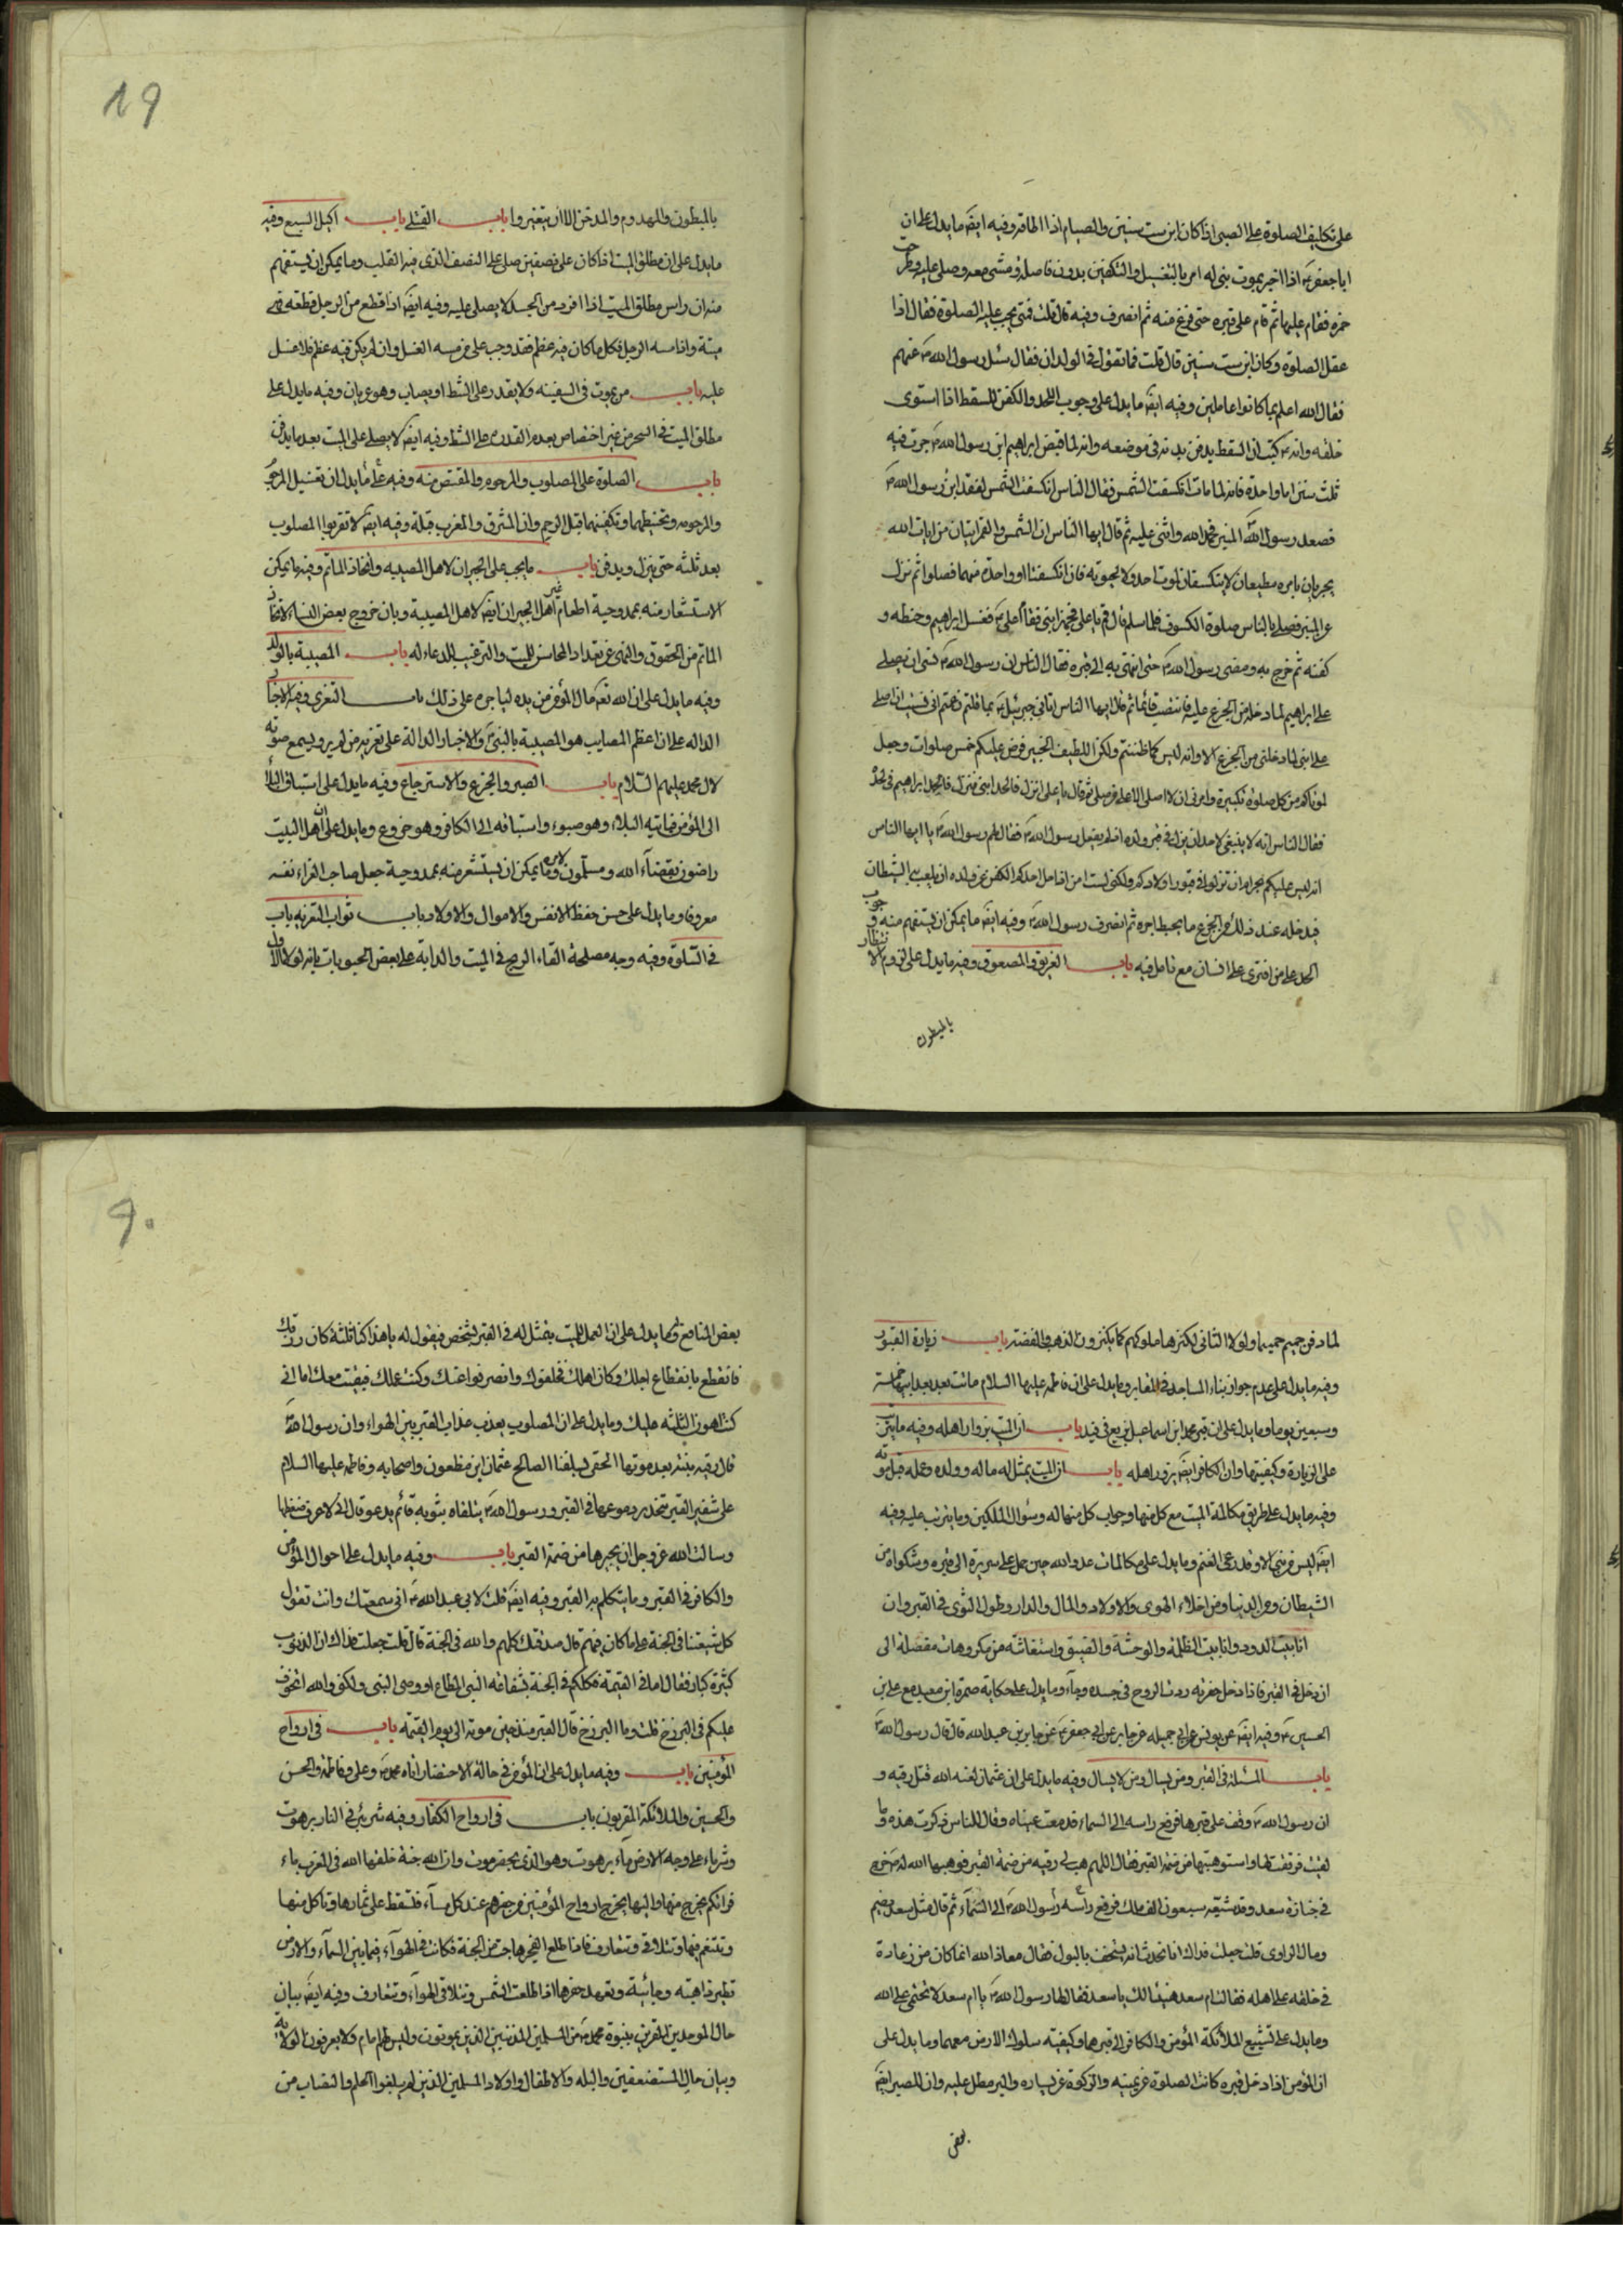 على تكليف الصلوة على الصبى اذا كان ابن ست سنين والصيام اذا اطاقه وفيه ايضا ما يدل على ان
ابا جعفر ع اذا اخبر بموت بنى له امر بالتغسيل والتكفين بدون فاصلة ومشى معه وصلى عليه وطرحت
خمرة فقام عليها ثم قام على قبره حتى فرغ منه ثم انصرف وفيه قال قلت فمتى يجب عليه الصلوة فقال اذا
عقل الصلوة وكان ابن ست سنين قال قلت فما تقول فى الولدان فقال سئل رسول الله ص عنهم
فقال الله اعلم بما كانوا عاملين وفيه ايضا ما يدل على وجوب اللحد والكفن للسقط اذا استوى
خلقه وانه ع كتب ان السقط يدفن بدمه فى موضعه وانه لما قبض ابراهيم ابن رسول الله ص جرت فيه
ثلث سنن اما واحدة فانه لما مات انكسفت الشمس فقال الناس انكسفت الشمس لفقد ابن رسول الله ص
فصعد رسول الله المنبر فحمد الله واثنى عليه ثم قال ايها الناس ان الشمس والقمر ايتان من ايات الله
يجريان بامره مطيعان لا ينكسفان لموت احد ولا لحيوته فان انكسفتا او واحدة منهما فصلوا ثم نزل
عن المنبر فصلى بالناس صلوة الكسوف فلما سلم قال قم يا على فجهز ابنى فقام على ع فغسل ابراهيم وحنطه و
كفنه ثم خرج به ومضى رسول الله ص حتى انتهى به الى قبره فقال الناس ان رسول الله ص نسى ان يصلى
على ابراهيم لما دخله من الجزع عليه فانتصب قائما ثم قال ايها الناس اتانى جبرئيل ع بما قلتم زعمتم انى نسيت ان اصلى
على ابنى لما دخلنى من الجزع الا وانه ليس كما ظننتم ولكن اللطيف الخبير فرض عليكم خمس صلوات وجعل
لموتاكم من كل صلوة تكبيرة وامرنى ان لا اصلى الا على من صلى ثم قال يا على انزل فالحد ابنى فنزل فالحد ابراهيم فى لحده
فقال الناس انه لا ينبغى لاحد ان ينزل فى قبر ولده اذ لم يفعل رسول الله ص فقال لهم رسول الله ص يا ايها الناس
انه ليس عليكم بحرام ان تنزلوا فى قبور اولادكم ولكنى لست امن اذا حل احدكم الكفن عن ولده ان يلعب به الشيطان
فيدخله عند ذلك من الجزع ما يحبط اجره ثم انصرف رسول الله ص وفيه ايضا ما يمكن ان يستفهم منه وجوب
الحد على من افترى على انسان مع تامل فيه باب الغريق والمصعوق وفيه ما يدل على لزوم الانتظار
بالمبطون
19
بالمبطون والمهدوم والمدخن الا ان يتغيروا باب القتلى باب اكيل السبع وفيه
ما يدل على ان مطلق الميت اذا كان على نصفين صلى على النصف الذى فيه القلب وما يمكن ان يستفهم
منه ان راس مطلق الميت اذا افرد من الجسد لا يصلى عليه وفيه ايضا اذا قطع من الرجل قطعة فهى
ميتة واذا مسه الرجل فكل ما كان فيه عظم فقد وجب على من مسه الغسل وان لم يكن فيه عظم فلا غسل
عليه باب من يموت فى السفينة ولا يقدر على الشط او يصاب وهو عريان وفيه ما يدل على
مطلق الميت فى البحر من غير اختصاص بعدم القدرة على الشط وفيه ايضا لا يصلى على الميت بعد ما يدفن
باب الصلوة على المصلوب والمرجوم والمقتص منه وفيه ما يدل ان تغسيل المرجوم
والمرجومة وتحنيطهما وتكفينهما قبل الرجم وان المشرق والمغرب قبلة وفيه ايضا لا تقربوا المصلوب
بعد ثلثة حتى ينزل ويدفن باب ما يجب على الجيران لاهل المصيبة واتخاذ الماتم وفيه ما يمكن
الاستشعار منه بممدوحية اطعام غير اهل الجيران ايضا لاهل المصيبة وبان خروج بعض النساء لاتخاذ
الماتم من الحقوق والنهى عن تعداد المحاسن للميت والترغيب للدعاء له باب المصيبة بالولد
وفيه ما يدل على ان الله تعالى مال المؤمن من يده لياجره على ذلك باب التعزى وفيه الاخبار
الدالة على ان اعظم المصايب هو المصيبة بالنبى والاخبار الدالة على تعزية من لم ير ويسمع صوته
لال محمد عليهم السلام باب الصبر والجزع والاسترجاع وفيه ما يدل على استباق البلاء
الى المؤمن فياتيه البلاء وهو صبور واستباقه الى الكافر وهو جزوع وما يدل على ان اهل البيت
راضون بقضاء الله ومسلمون لامره وما يمكن ان يستشعر منه بممدوحية جعل صاحب العزاء نفسه
معروفا وما يدل على حسن حفظ الانفس والاموال والاولاد باب ثواب التعزية باب
فى السلوة وفيه وجه مصلحة القاء الروح فى الميت والدابة على بعض الحبوبات بانه لولا الاول
لما دفن حميم حميما ولولا الثانى لكنزها ملوكهم كما يكنزون الذهب والفضة باب زيارة القبور
وفيه ما يدل على عدم جواز بناء المساجد فى المقابر وما يدل على ان فاطمة عليها السلام ماتت بعد ابيها خمسة
وسبعين يوما وما يدل على ان قبر محمد ابن اسماعيل بن بزيع فى فيد باب ان الميت يزوار اهله وفيه ما يترتب
على الزيارة وكيفيتها وان الكافر ايضا يزور اهله باب ان الميت يمثل له ماله وولده وعمله قبل موته
وفيه ما يدل على طريق مكالمة الميت مع كل منها وجواب كل منها له وسؤال الملكين وما يترتب عليه وفيه
ايضا ليس من نبى الا وقد رعى الغنم وما يدل على مكالمات عدو الله حين حمل على سريرة الى قبره وشكواه من
الشيطان ومن الدنيا ومن اخلاء الهوى والاولاد والمال والدار وطول الثوى فى القبر وان
انا بيت الدود وانا بيت الظلمة والوحشة والضيق واستغاثته من مكروهات مفصلة الى
ان دخل فى القبر فاذا دخل حفرته ردت الروح فى جسده وجاء وما يدل على حكاية ضمرة ابن معبد مع على بن
الحسين ع وفيه ايضا عن يونس عن ابى جميلة عن جابر عن ابى جعفر ع عن جابر بن عبد الله قال قال رسول الله ص
باب المسئلة فى القبر ومن يسال ومن لا يسال وفيه ما يدل على ان عثمان لعنه الله قتل رقية و
ان رسول الله ص وقف على قبرها فرفع راسه الى السماء فدمعت عيناه وقال للناس ذكرت هذه وما
لقيت فرققت لها واستوهبتها من ضمة القبر فقال اللهم هب لى رقية من ضمة القبر فوهبها الله له خرج
فى جنازة سعد وقد شيعه سبعون الف ملك فرفع راسه رسول الله ص الى السماء ثم قال مثل سعد يضم
وما الراوى قلت جعلت فداك انا نحدث انه يستخف بالبول فقال معاذ الله انما كان من زعارة
فى خلقه على اهله فقالت ام سعد هنيئا لك يا سعد فقال لها رسول الله ص يا ام سعد لا تحتمى على الله
وما يدل على تشييع الملائكة المؤمن والكافر الى قبرهما وكيفية سلوك الارض معهما وما يدل على
ان المؤمن اذا دخل قبره كانت الصلوة عن يمينه والزكوة عن يساره والبر مطل عليه وان للصبر ايضا
بعض
9.
بعض المنافع وما يدل على ان العمل للميت يتمثل له فى القبر لشخص فيقول له يا هذا كنا ثلثة كان رزقك
فانقطع بانقطاع اجلك وكان اهلك فخلفوك وانصرفوا عنك وكنت عملك فبقيت معك اما انى
كنت اهون الثلثة عليك وما يدل على ان المصلوب يعذب عذاب القبر بين الهواء وان رسول الله ص
قال رقية بنته بعد موتها الحقى بسلفنا الصالح عثمان ابن مظعون واصحابه وفاطمة عليها السلام
على شفير القبر تنحدر دموعها فى القبر ورسول الله ص يتلقاه بثوبه قائم يدعو قال انى لاعرف ضعفها
وسالت الله عز وجل ان يجيرها من ضمة القبر باب وفيه ما يدل على احوال المؤمن
والكافر فى القبر وما يتكلم به القبر وفيه ايضا قلت لابى عبد الله ع انى سمعتك وانت تقول
كل شيعتنا فى الجنة على ما كان فيهم قال صدقتك كلهم والله فى الجنة قال قلت جعلت فداك ان الذنوب
كثيرة كبار فقال اما فى القيمة فكلكم فى الجنة بشفاعة النبى المطاع او وصى النبى ولكنى والله اتخوف
عليكم فى البرزخ قلت وما البرزخ قال القبر منذ حين موته الى يوم القيمة باب فى ارواح
المؤمنين باب وفيه ما يدل على ان المؤمن فى حالة الاحتضار اتاه محمد ص وعلى وفاطمة والحسن
والحسين والملائكة المقربون باب فى ارواح الكفار وفيه شر بئر فى النار برهوت
وشر ماء على وجه الارض ماء برهوت وهو الذى بحضرموت وان لله جنة خلقها الله فى المغرب ماء
فراتكم يخرج منها واليها يخرج ارواح المؤمنين من حفرهم عند كل مساء فتسقط على ثمارها وتاكل منها
وتتنعم فيها وتتلاقى وتتعارف فاذا طلع الفجر هاجت من الجنة فكانت فى الهواء فيما بين السماء والارض
تطير ذاهبة وجائية وتعهد حفرها اذا طلعت الشمس وتتلاقى فى الهواء وتتعارف وفيه ايضا بيان
حال الموحدين المقرين بنبوة محمد ص من المسلمين المذنبين الذين يموتون وليس لهم امام ولا يعرفون الولاية
وبيان حال المستضعفين والبله والاطفال واولاد المسلمين الذين لم يبلغوا الحلم والنصاب من